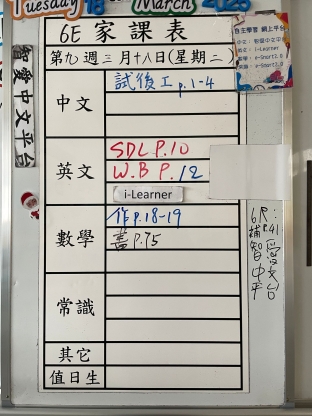 Tuesday 18 March 2025
6E 家課表
第九週三月十八日(星期二)
自主學習 網上平台
中文：智愛中文平台
英文：i-Learner
數學：e-Smart2.0
常識：e-Smart2.0
智愛中文平台
中文
試後工 p.1-4
英文
SDL P.10
W.B P.12
i-Learner
數學
作 p.18-19
書 P.75
常識
其它
值日生
6R：
補 P.41
智愛中文平台